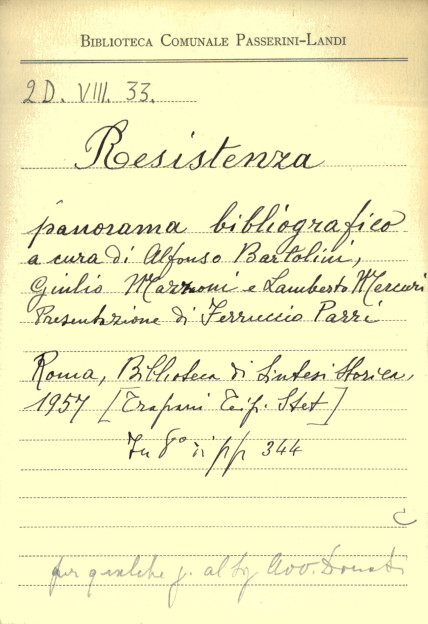 BIBLIOTECA COMUNALE PASSERINI-LANDI
2D. VIII. 33.
Resistenza
panorama bibliografico
a cura di Alfonso Bartolini,
Giulio Mazzoni e Lamberto Mercuri
Presentazione di Ferruccio Parri
Roma, Biblioteca di Sintesi Storica,
1957 [Trapani Tip. Stet]
In 8° di pp 344
C
per qualche g. al Sig Avv. Donati